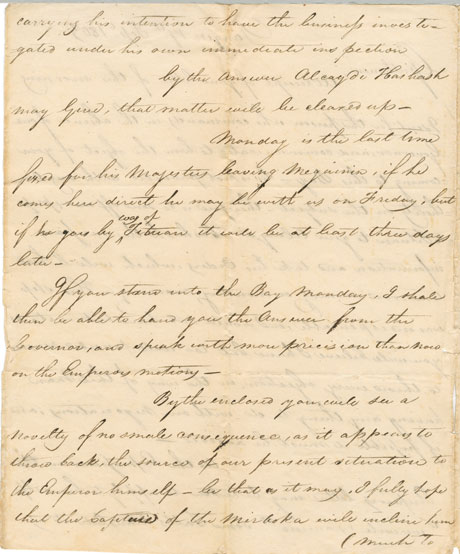 carrying his intention to have the business investi-
gated under his own immediate inspection
by the Answer Alcayde Hashash
may Give, that matter will be cleared up —
Monday is the last time
fixed for his Majesties leaving Mequinin, if he
comes here direct he may be with us on Friday, but
way of
if he goes by Tetuan it will be at least three days
later —
If you stand into the Bay Monday, I shall
then be able to hand you the Answer from the
Governor, and speak with more precision than now
on the Emperors motions —
By the enclosed you will see a
novelty of no small consequence, as it appears to
throw back the source of our present situation to
the Emperor himself — be that as it may, I fully hope
that the Capture of the Mirboka will incline him
(much to